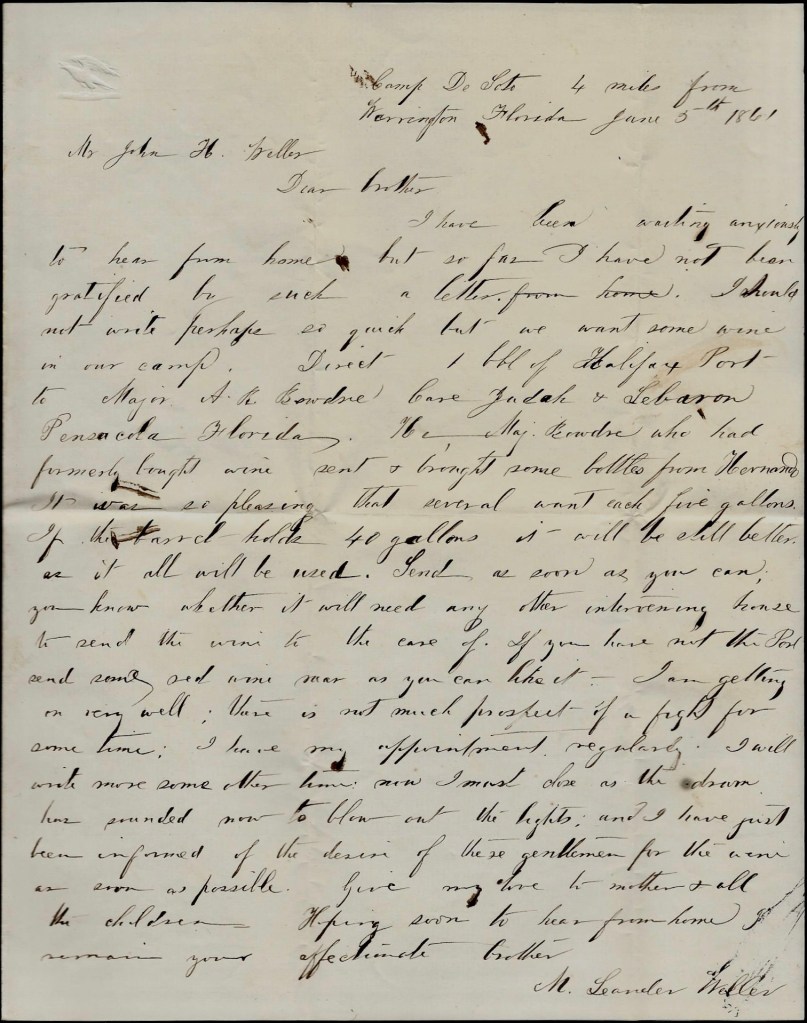 Camp De Soto 4 miles from
Warrington Florida June 5th 1861
Mr John H. Weller
Dear brother
I have been waiting anxiously
to hear from home, but so far I have not been
gratified by such a letter from home. I should
not write perhaps so quick but we want some wine
in our camp. Direct 1 bbl of Halifax Port
to Major A. K. Bowdre Care Judah & Lebaron
Pensacola Florida. He, Maj. Bowdre who had
formerly bought wine sent & brought some bottles from Hernando
It was so pleasing that several want each five gallons.
If the barrel holds 40 gallons it will be still better.
as it all will be used. Send as soon as you can;
you know whether it will need any other intervening house
to send the wine to the care of. If you have not the Port
send some red wine near as you can like it – I am getting
on very well; there is not much prospect of a fight for
some time; I have my appointment regularly. I will
write more some other time: now I must close as the drum
has sounded now to blow out the lights; and I have just
been informed of the desire of these gentlemen for the wine
as soon as possible. Give my love to mother & all
the children – Hping soon to hear from home I
remain your affectionate brother
M. Leander Weller